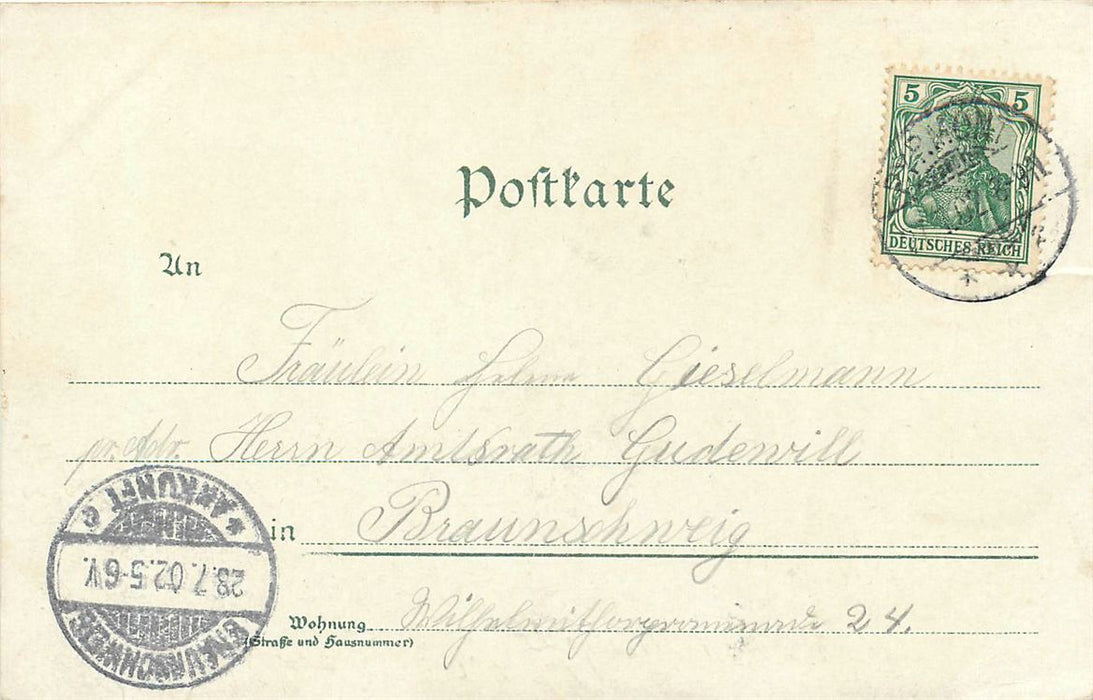 5 5
DEUTSCHES REICH
Postkarte
An
Fräulein Helene Gieselmann
pr. Adr. Herrn Amtsrath Gudewill
in Braunschweig
Wohnung Wilhelmithorpromenade 24.
(Straße und Hausnummer)
* ANKUNFT c
28.7.02.5-6V.
BRAUNSCHWEIG